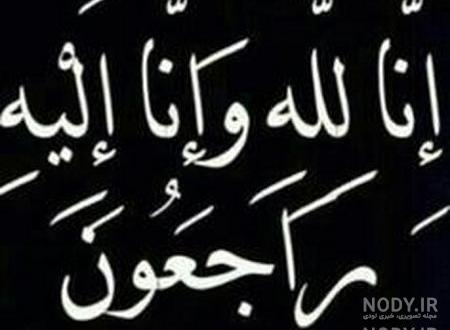 إنَّا لله وَإنَّا إليْه
رَاجَعُونَ
NODY.IR
مجله تصویری، خبری نودی
NODY.IR